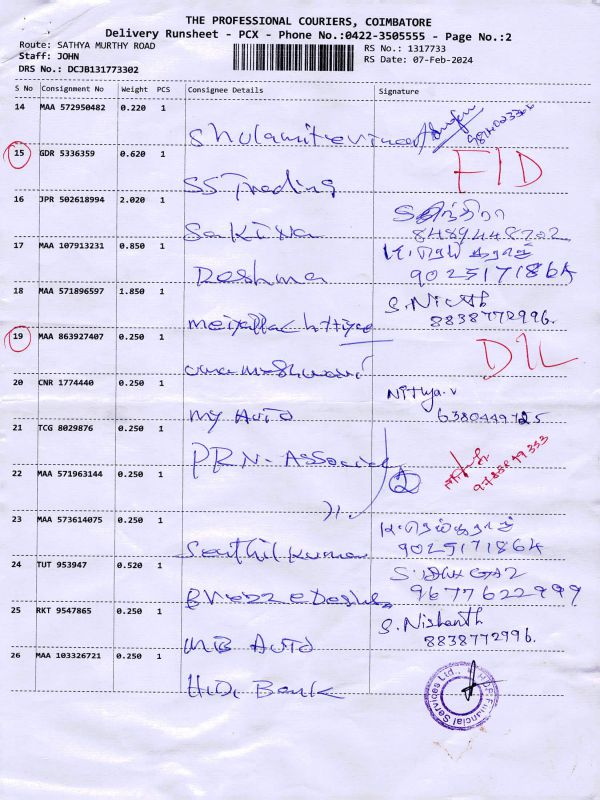 THE PROFESSIONAL COURIERS, COIMBATORE
Delivery Runsheet - PCX - Phone No.:0422-3505555 - Page No.:2
Route: SATHYA MURTHY ROAD
RS No.: 1317733
Staff: JOHN
RS Date: 07-Feb-2024
DRS No.: DCJB131773302
S No Consignment No Weight PCS Consignee Details Signature
14 MAA 572950482 0.220 1
15 GDR 5336359 0.620 1
SS Trading
16 JPR 502618994 2.020 1
Sakina
8489448702
17 MAA 107913231 0.850 1
Reshma
9025171864
18 MAA 571896597 1.850 1
S. Nisanth
8838772996.
19 MAA 863927407 0.250 1
20 CNR 1774440 0.250 1
My Auto
Nithya.v
6380449725
21 TCG 8029876 0.250 1
PRN. Associates
22 MAA 571963144 0.250 1
11.
2
23 MAA 573614075 0.250 1
Senthil Kumar
9025171864
24 TUT 953947 0.520 1
9677622999
25 RKT 9547865 0.250 1
MB Auto
S. Nishanth
8838772996.
26 MAA 103326721 0.250 1
Bank
Financial Services Ltd.